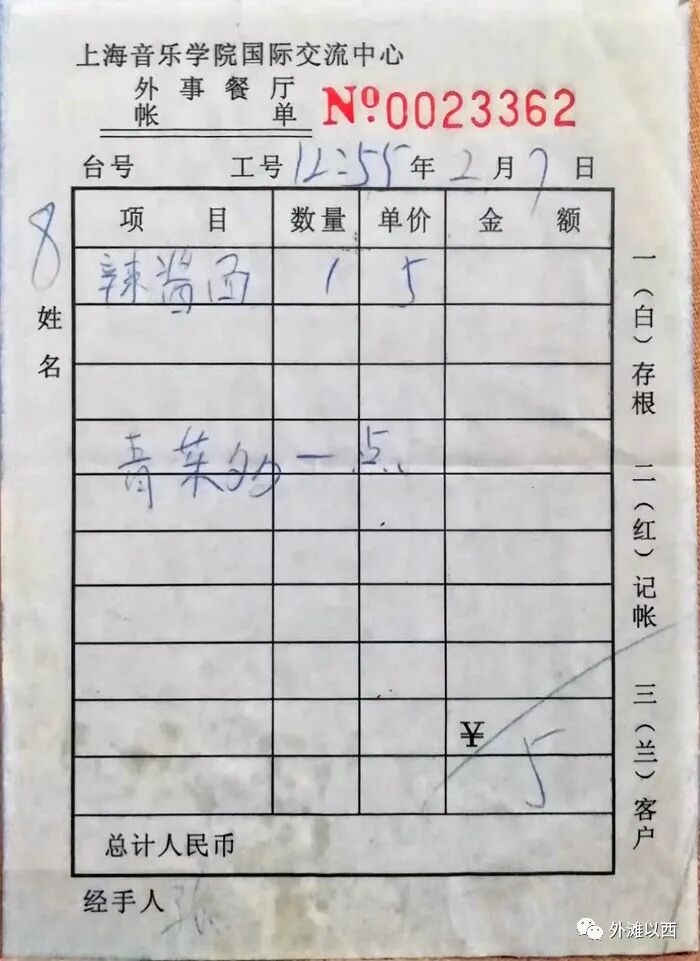 上海音乐学院国际交流中心
外事餐厅
帐单
№0023362
台号 工号 12:55 年 2 月 7 日
8
姓名
项目 数量 单价 金额
辣酱面 1 5
青菜多一点
¥ 5
总计人民币
经手人 张
一(白)存根 二(红)记帐 三(兰)客户
外滩以西